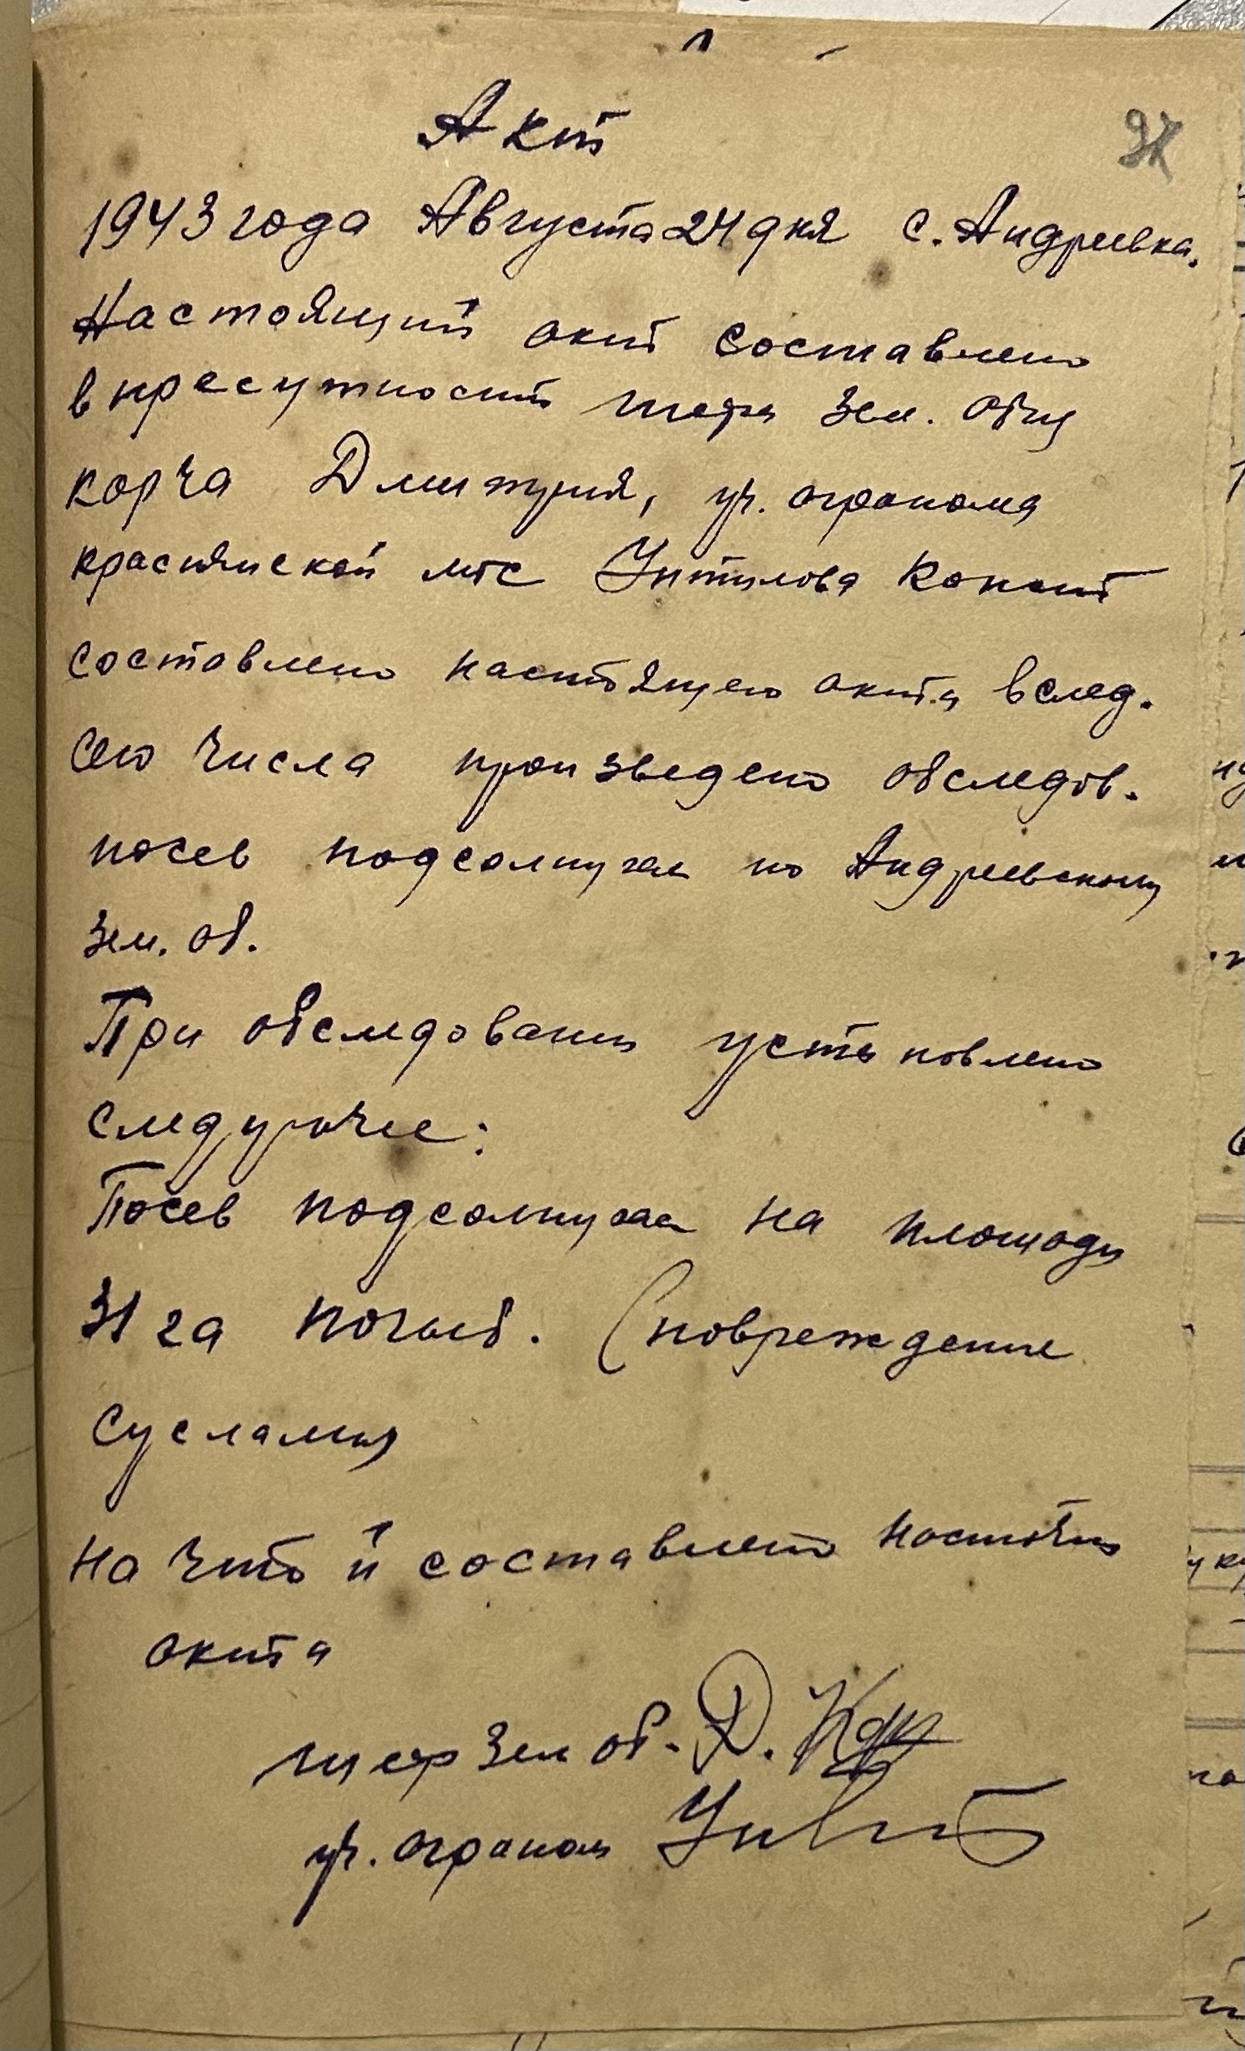 Акт
1943 года Августа 24 дня с. Андреевка.
Настоящий акт составлено
в пресутности шефа Зем. Общ
Корча Дмитрия, уч. агронома
краснянской мтс Конст
составлено настоящего акта в след.
сего числа произведено обследов.
посев подсолнухам по Андреевскому
Зем. об.
При обследовании установлено
следуючее:
Посев подсолнухам на площади
31 га погиб. (повреждение
суслами
на что и составлено
акта
шеф Зем об. Д. Кор
уч. агроном